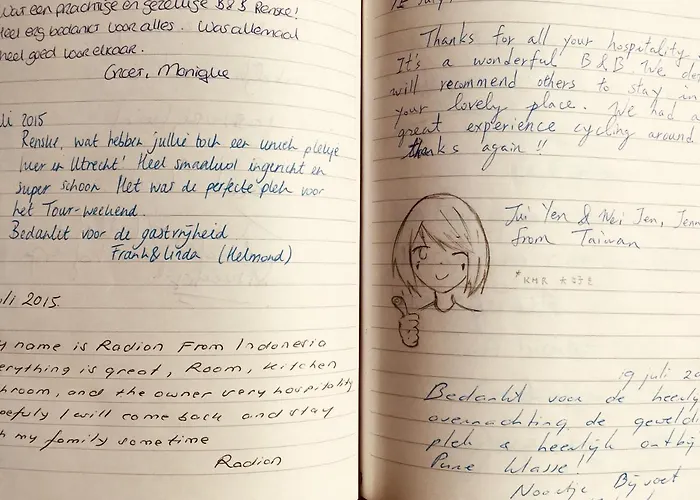 Wat een prachtige en gezellige B&B Renske!
Heel erg bedankt voor alles. Was allemaal
heel goed voor elkaar.
Groet, Monique
li 2015
Renske, wat hebben jullie toch een uniek plekje
hier in Utrecht! Heel smaakvol ingericht en
super schoon. Het was de perfecte plek voor
het Tour-weekend.
Bedankt voor de gastvrijheid
Frank & Linda (Helmond)
uli 2015.
y name is Radion From Indonesia
erything is great, Room, kitchen
hroom, and the owner very hospitality
pefuly I will come back and stay
h my family sometime
Radion
12 July
Thanks for all your hospitality
It's a wonderful B&B We de
will recommend others to stay in
your lovely place. We had a
great experience cycling around
thanks again !!
Jui Yen & Wei Jen, Jenn
from Taiwan
19 juli 20
Bedankt voor de heerly
overnachting de geweldi
plek & heerlijk ontbij
Pure klasse!
Nootje Bijvoet